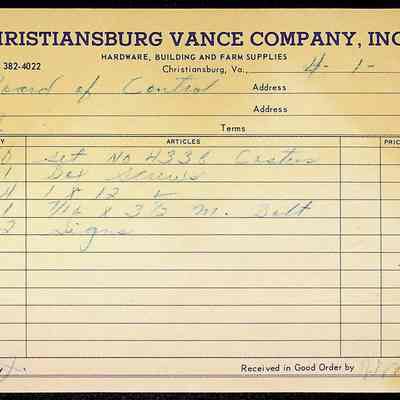 HRISTIANSBURG VANCE COMPANY, INC
HARDWARE, BUILDING AND FARM SUPPLIES
382-4022
Christiansburg, Va., 4-1-
Board of Control Address
Address
Terms
Y ARTICLES PRIC
0 set No 4338 Casters
1 Box Screws
4 1 x 12
1 7/16 x 3 1/2 M. Bolt
2 Signs
Received in Good Order by